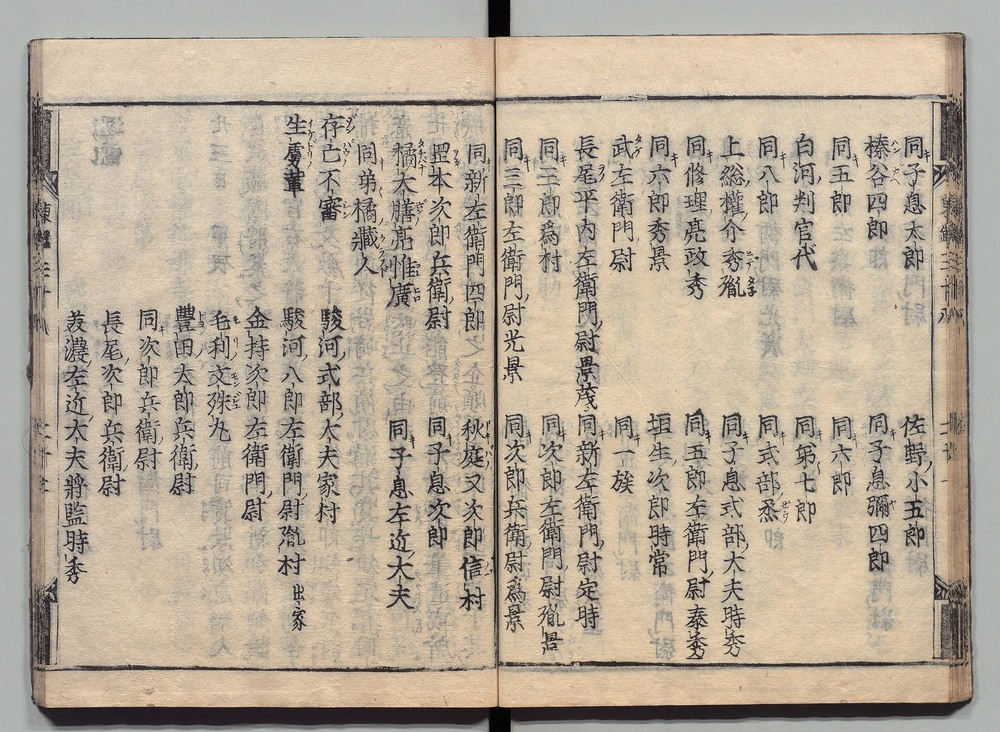 同子息太郎 佐野小五郎
榛谷四郎 同子息彌四郎
同五郎 同六郎
白河判官代 同弟七郎
同八郎 同式部丞
上総權介秀胤 同子息式部大夫時秀
同修理亮政秀 同五郎左衛門尉泰秀
同六郎秀景 垣生次郎時常
武左衛門尉 同一族
長尾平内左衛門尉景茂 同新左衛門尉定時
同三郎爲村 同次郎左衛門尉胤景
同三郎左衛門尉光景 同次郎兵衛尉爲景
同新左衛門四郎 秋庭又次郎信村
岡本次郎兵衛尉 同子息次郎
橘大膳亮惟廣 同子息左近大夫
同弟橘藏人
存亡不審 駿河式部大夫家村
生虜輩 駿河八郎左衛門尉胤村 出家
金持次郎左衛門尉
毛利文殊丸
豐田太郎兵衛尉
同次郎兵衛尉
長尾次郎兵衛尉
美濃左近大夫將監時秀